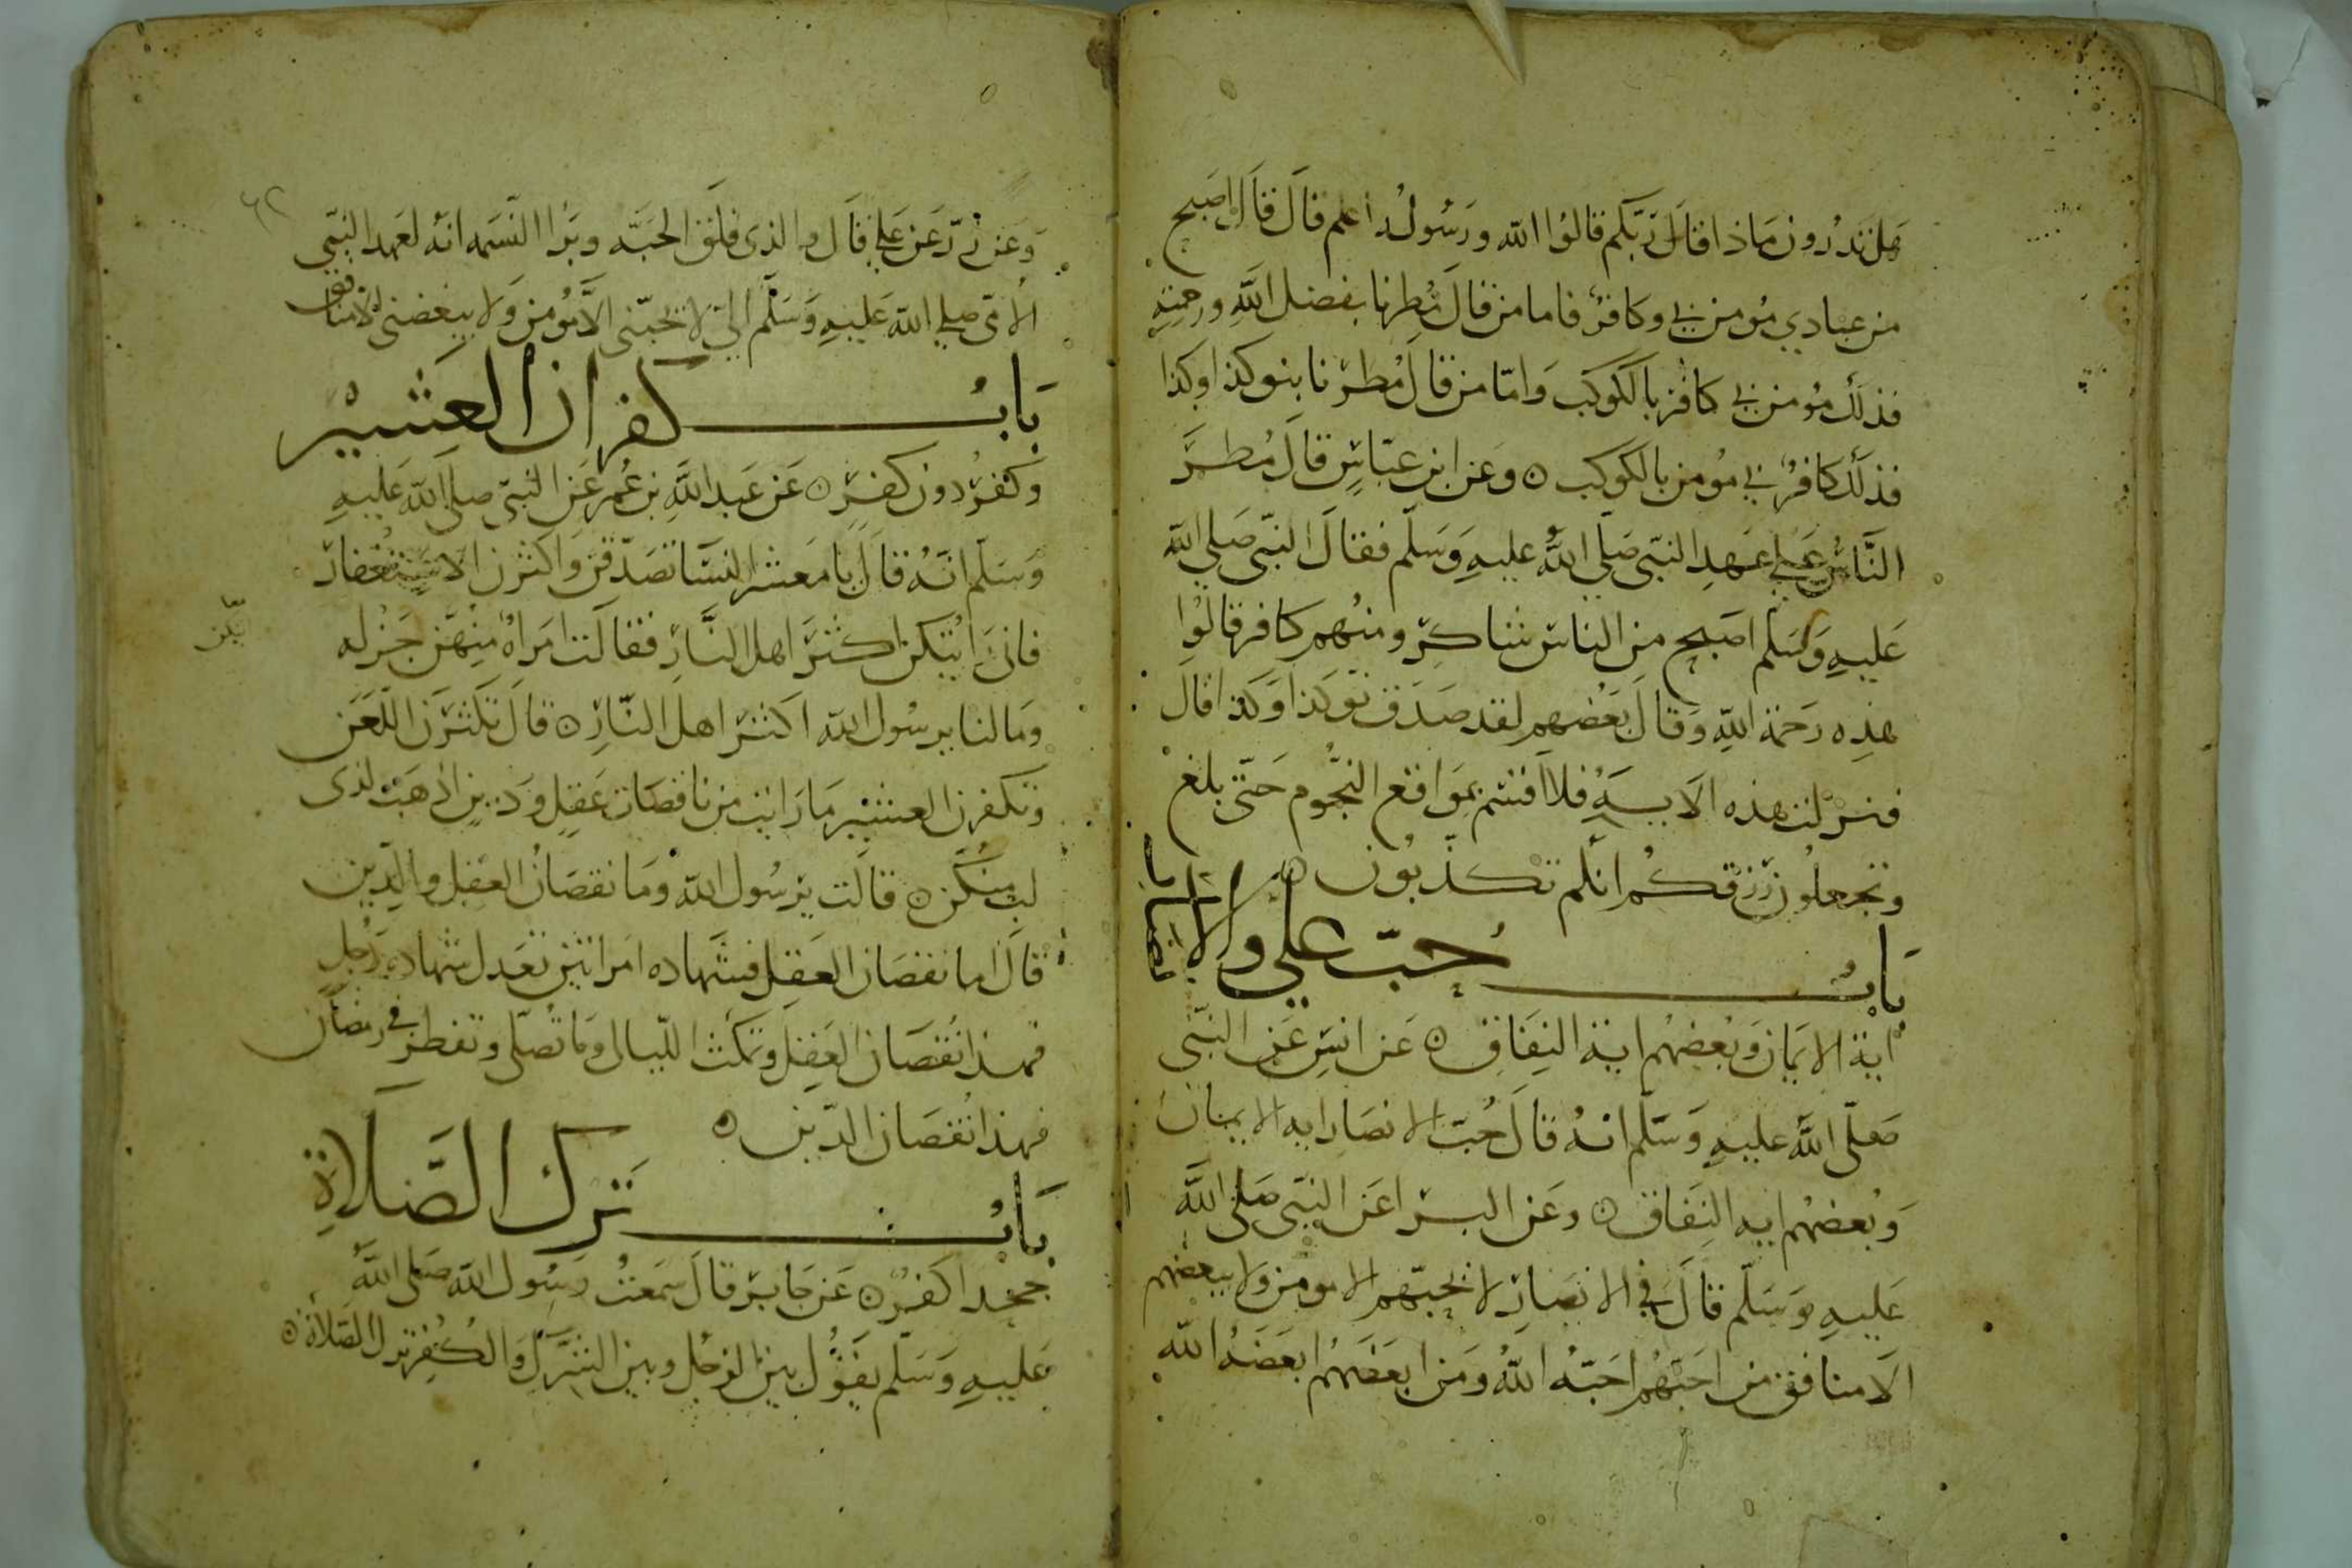 هل تدرون ماذا قال ربكم قالوا الله ورسوله اعلم قال قال اصبح
من عبادي مؤمن بي وكافر فاما من قال مطرنا بفضل الله ورحمته
فذلك مؤمن بي كافر بالكوكب واما من قال مطرنا بنو كذا وكذا
فذلك كافر بي مؤمن بالكوكب ٥ وعن ابن عباس قال مطر
الناس على عهد النبي صلى الله عليه وسلم فقال النبي صلى الله
عليه وسلم اصبح من الناس شاكر ومنهم كافر قالوا
هذه رحمة الله وقال بعضهم لقد صدق نو كذا وكذا قال
فنزلت هذه الاية فلا اقسم بمواقع النجوم حتى بلغ
وتجعلون رزقكم انكم تكذبون ٥
باب حب علي والانصار
اية الايمان وبغضهم اية النفاق ٥ عن انس عن النبي
صلى الله عليه وسلم انه قال حب الانصار ايه الايمان
وبغضهم ايه النفاق ٥ وعن البرا عن النبي صلى الله
عليه وسلم قال في الانصار لا يحبهم الا مومن ولا يبغضهم
الا منافق من احبهم احبه الله ومن ابغضهم ابغضه الله
٦٢
وعن زر عن علي قال والذي فلق الحبه وبرا النسمه انه لعهد النبي
الامي صلى الله عليه وسلم الي لا يحبني الا مؤمن ولا يبغضني الا منافق
باب كفران العشير
وكفر دون كفر ٥ عن عبد الله بن عمر عن النبي صلى الله عليه
وسلم انه قال يا معشر النسا تصدقن واكثرن الاستغفار
فاني رايتكن اكثر اهل النار فقالت امراة منهن جزله
وما لنا يرسول الله اكثر اهل النار ٥ قال تكثرن اللعن
وتكفرن العشير ما رايت من ناقصات عقل ودين اذهب لذي
لب منكن ٥ قالت يرسول الله وما نقصان العقل والدين
قال اما نقصان العقل فشهاده امراتين تعدل شهاده رجل
فهذا نقصان العقل وتمكث الليالي وما تصلي وتفطر في رمضان
فهذا نقصان الدين ٥
باب ترك الصلاة
جحدا كفر ٥ عن جابر قال سمعت رسول الله صلى الله
عليه وسلم يقول بين الرجل وبين الشرك والكفر ترك الصلاة ٥